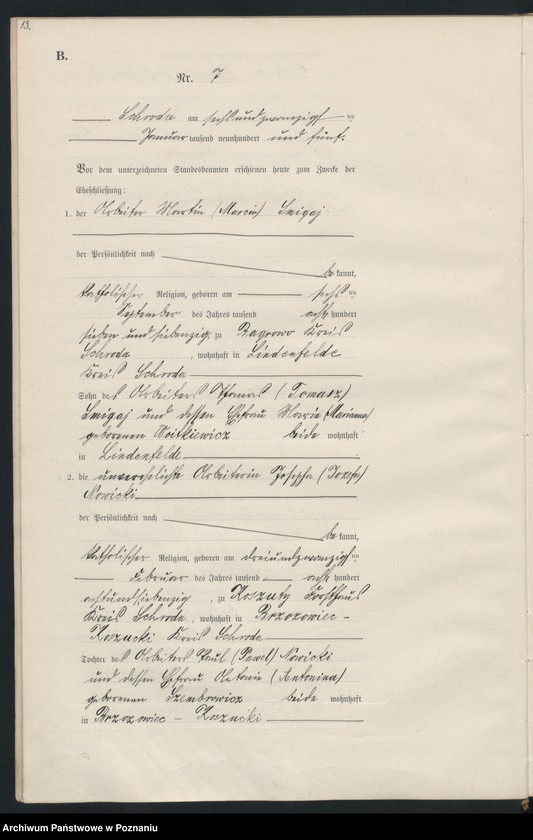 13.
B.
Nr. 7
Schroda am sechsundzwanzigsten
Januar tausend neunhundert und fünf.
Vor dem unterzeichneten Standesbeamten erschienen heute zum Zwecke der
Eheschließung:
1. der Arbeiter Martin (Marcin) Smigaj
der Persönlichkeit nach
bekannt,
katholischer Religion, geboren am sechsten
September des Jahres tausend achthundert
sieben und siebenzig zu Bagrowo Kreis
Schroda, wohnhaft in Lindenfelde
Kreis Schroda
Sohn des Arbeiters Thomas (Tomasz)
Smigaj und dessen Ehefrau Marie (Marianna)
geborenen Woitkiewicz beide wohnhaft
in Lindenfelde.
2. die unverehelichte Arbeiterin Josepha (Jozefa)
Nowicki
der Persönlichkeit nach
bekannt,
katholischer Religion, geboren am dreiundzwanzigsten
Februar des Jahres tausend achthundert
achtundsiebenzig, zu Koszuty Forsthaus
Kreis Schroda, wohnhaft in Brzozowiec -
Koszucki Kreis Schroda
Tochter des Arbeiters Paul (Pawel) Nowicki
und dessen Ehefrau Antonie (Antonina)
geborenen Szembrowicz beide wohnhaft
in Brzozowiec - Koszucki
Archiwum Państwowe w Poznaniu